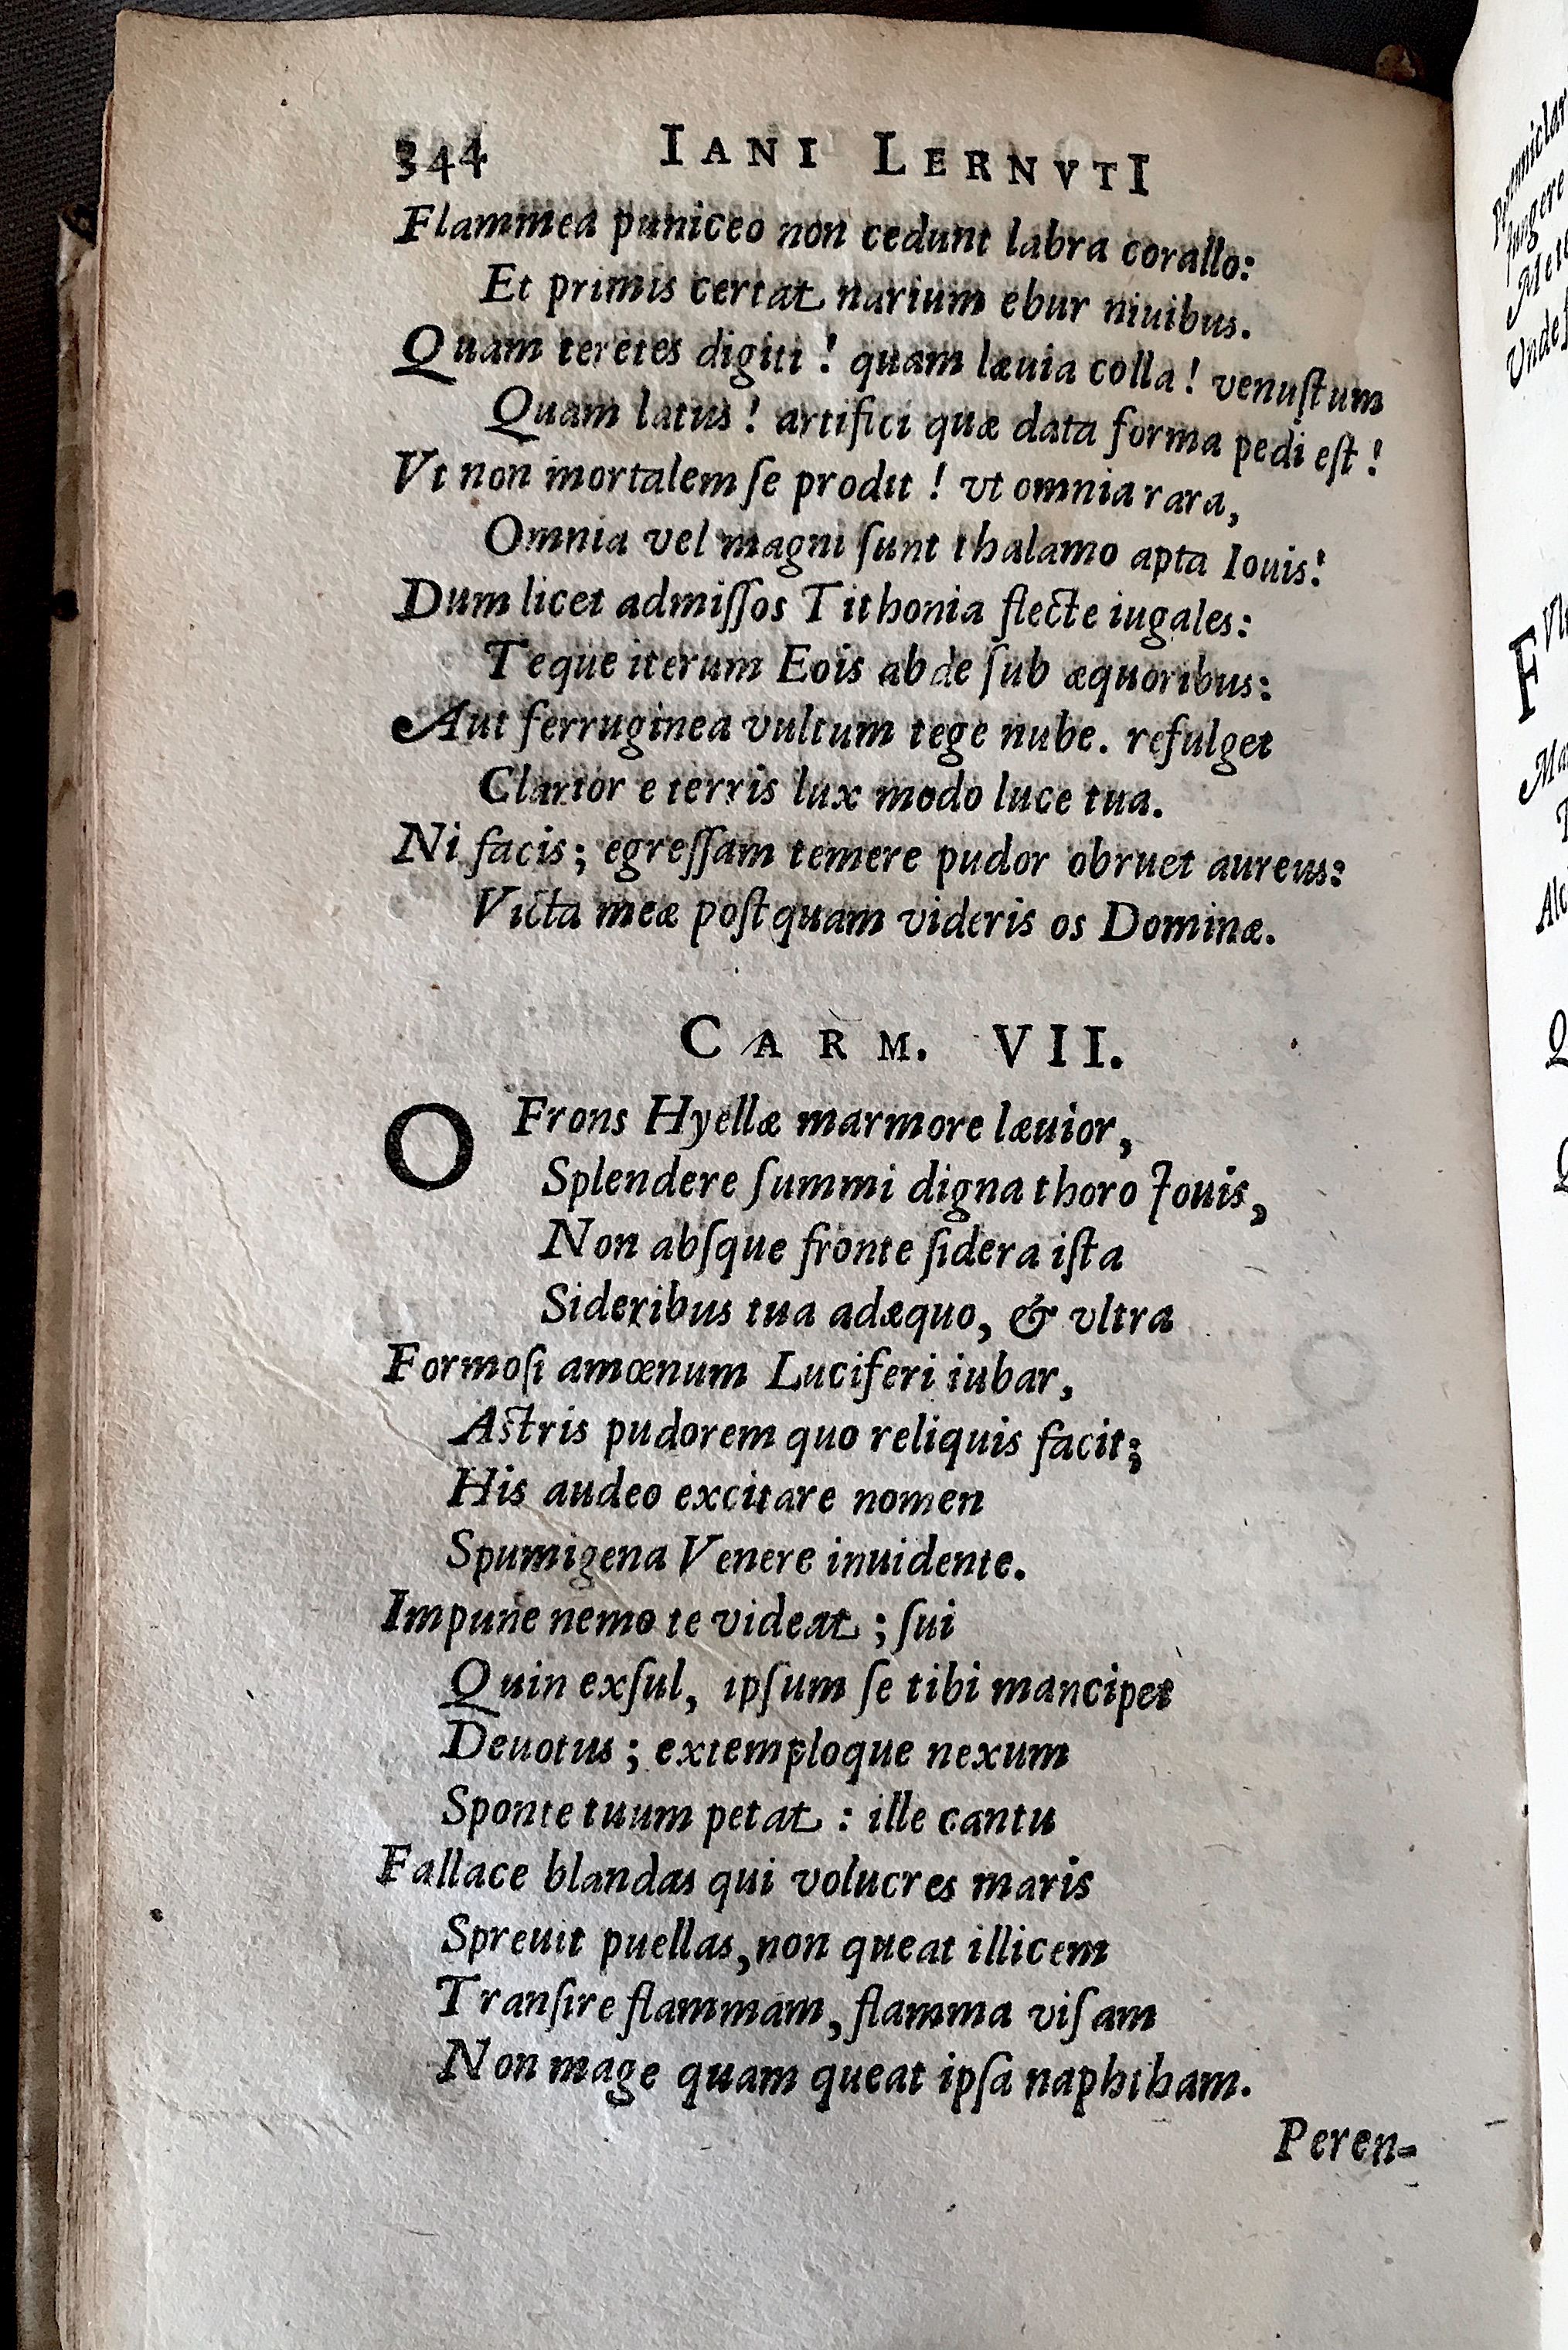 344 IANI LERNVTI
Flammea puniceo non cedunt labra corallo:
Et primis certat narium ebur niuibus.
Quam teretes digiti! quam læuia colla! venuſtum
Quam latus! artifici quæ data forma pedi eſt!
Vt non mortalem ſe prodit! vt omnia rara,
Omnia vel magni ſunt thalamo apta Iouis!
Dum licet admiſſos Tithonia flecte iugales:
Teque iterum Eois abde ſub æquoribus:
Aut ferruginea vultum tege nube. refulget
Clarior e terris lux modo luce tua.
Ni facis; egreſſam temere pudor obruet aureus:
Victa meæ poſtquam videris os Dominæ.
CARM. VII.
O Frons Hyellæ marmore læuior,
Splendere ſummi digna thoro Iouis,
Non abſque fronte ſidera iſta
Sideribus tua adæquo, & vltra
Formoſi amœnum Luciferi iubar,
Aſtris pudorem quo reliquis facit;
His audeo excitare nomen
Spumigena Venere inuidente.
Impune nemo te videat; ſui
Quin exſul, ipſum ſe tibi mancipet
Deuotus; extemploque nexum
Sponte tuum petat: ille cantu
Fallace blandas qui volucres maris
Spreuit puellas, non queat illicem
Tranſire flammam, flamma viſam
Non mage quam queat ipſa naphtham.
Peren-
Jungere
Vnde